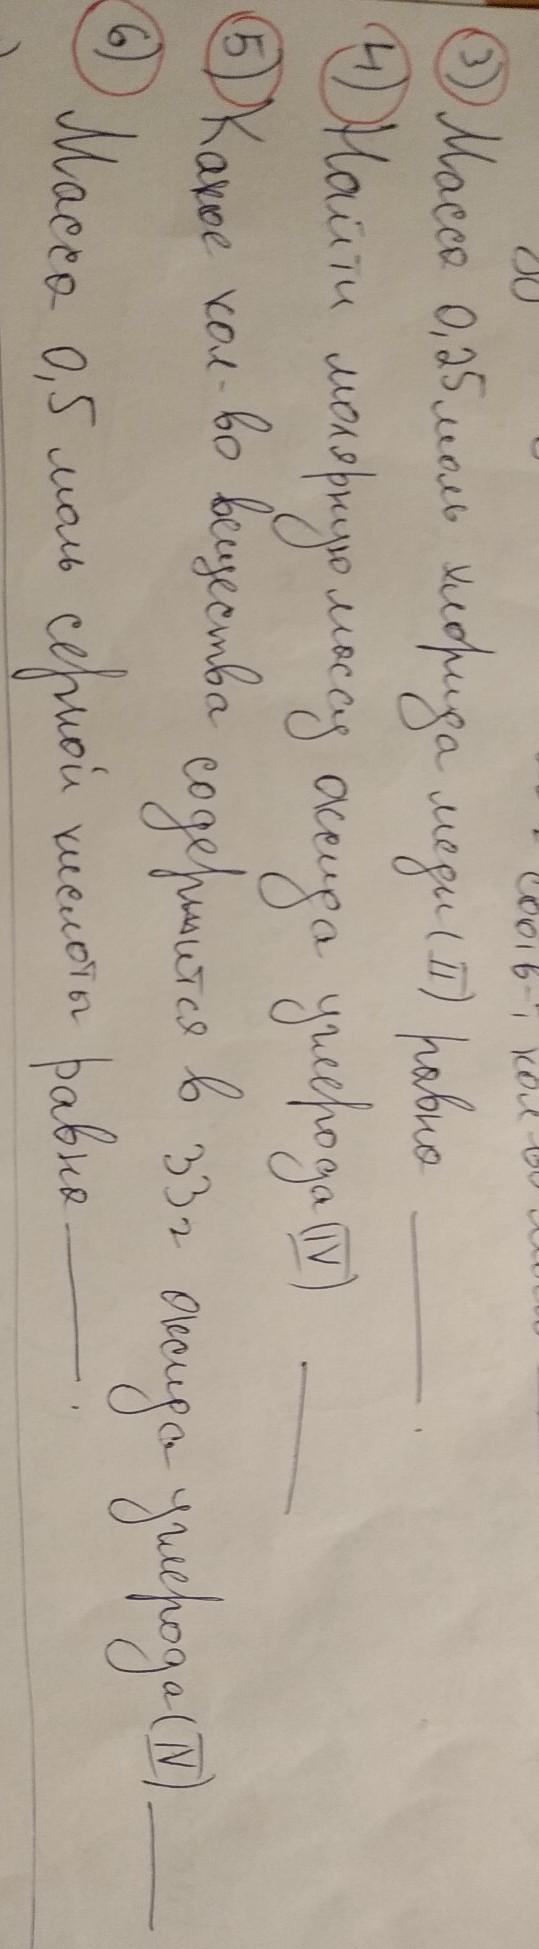 3) Масса 0,25 моль хлорида меди (II) равна ______.
4) Найти молярную массу оксида углерода (IV) ______
5) Какое кол-во вещества содержится в 33 г оксида углерода (IV) ______
6) Масса 0,5 моль серной кислоты равна ______.